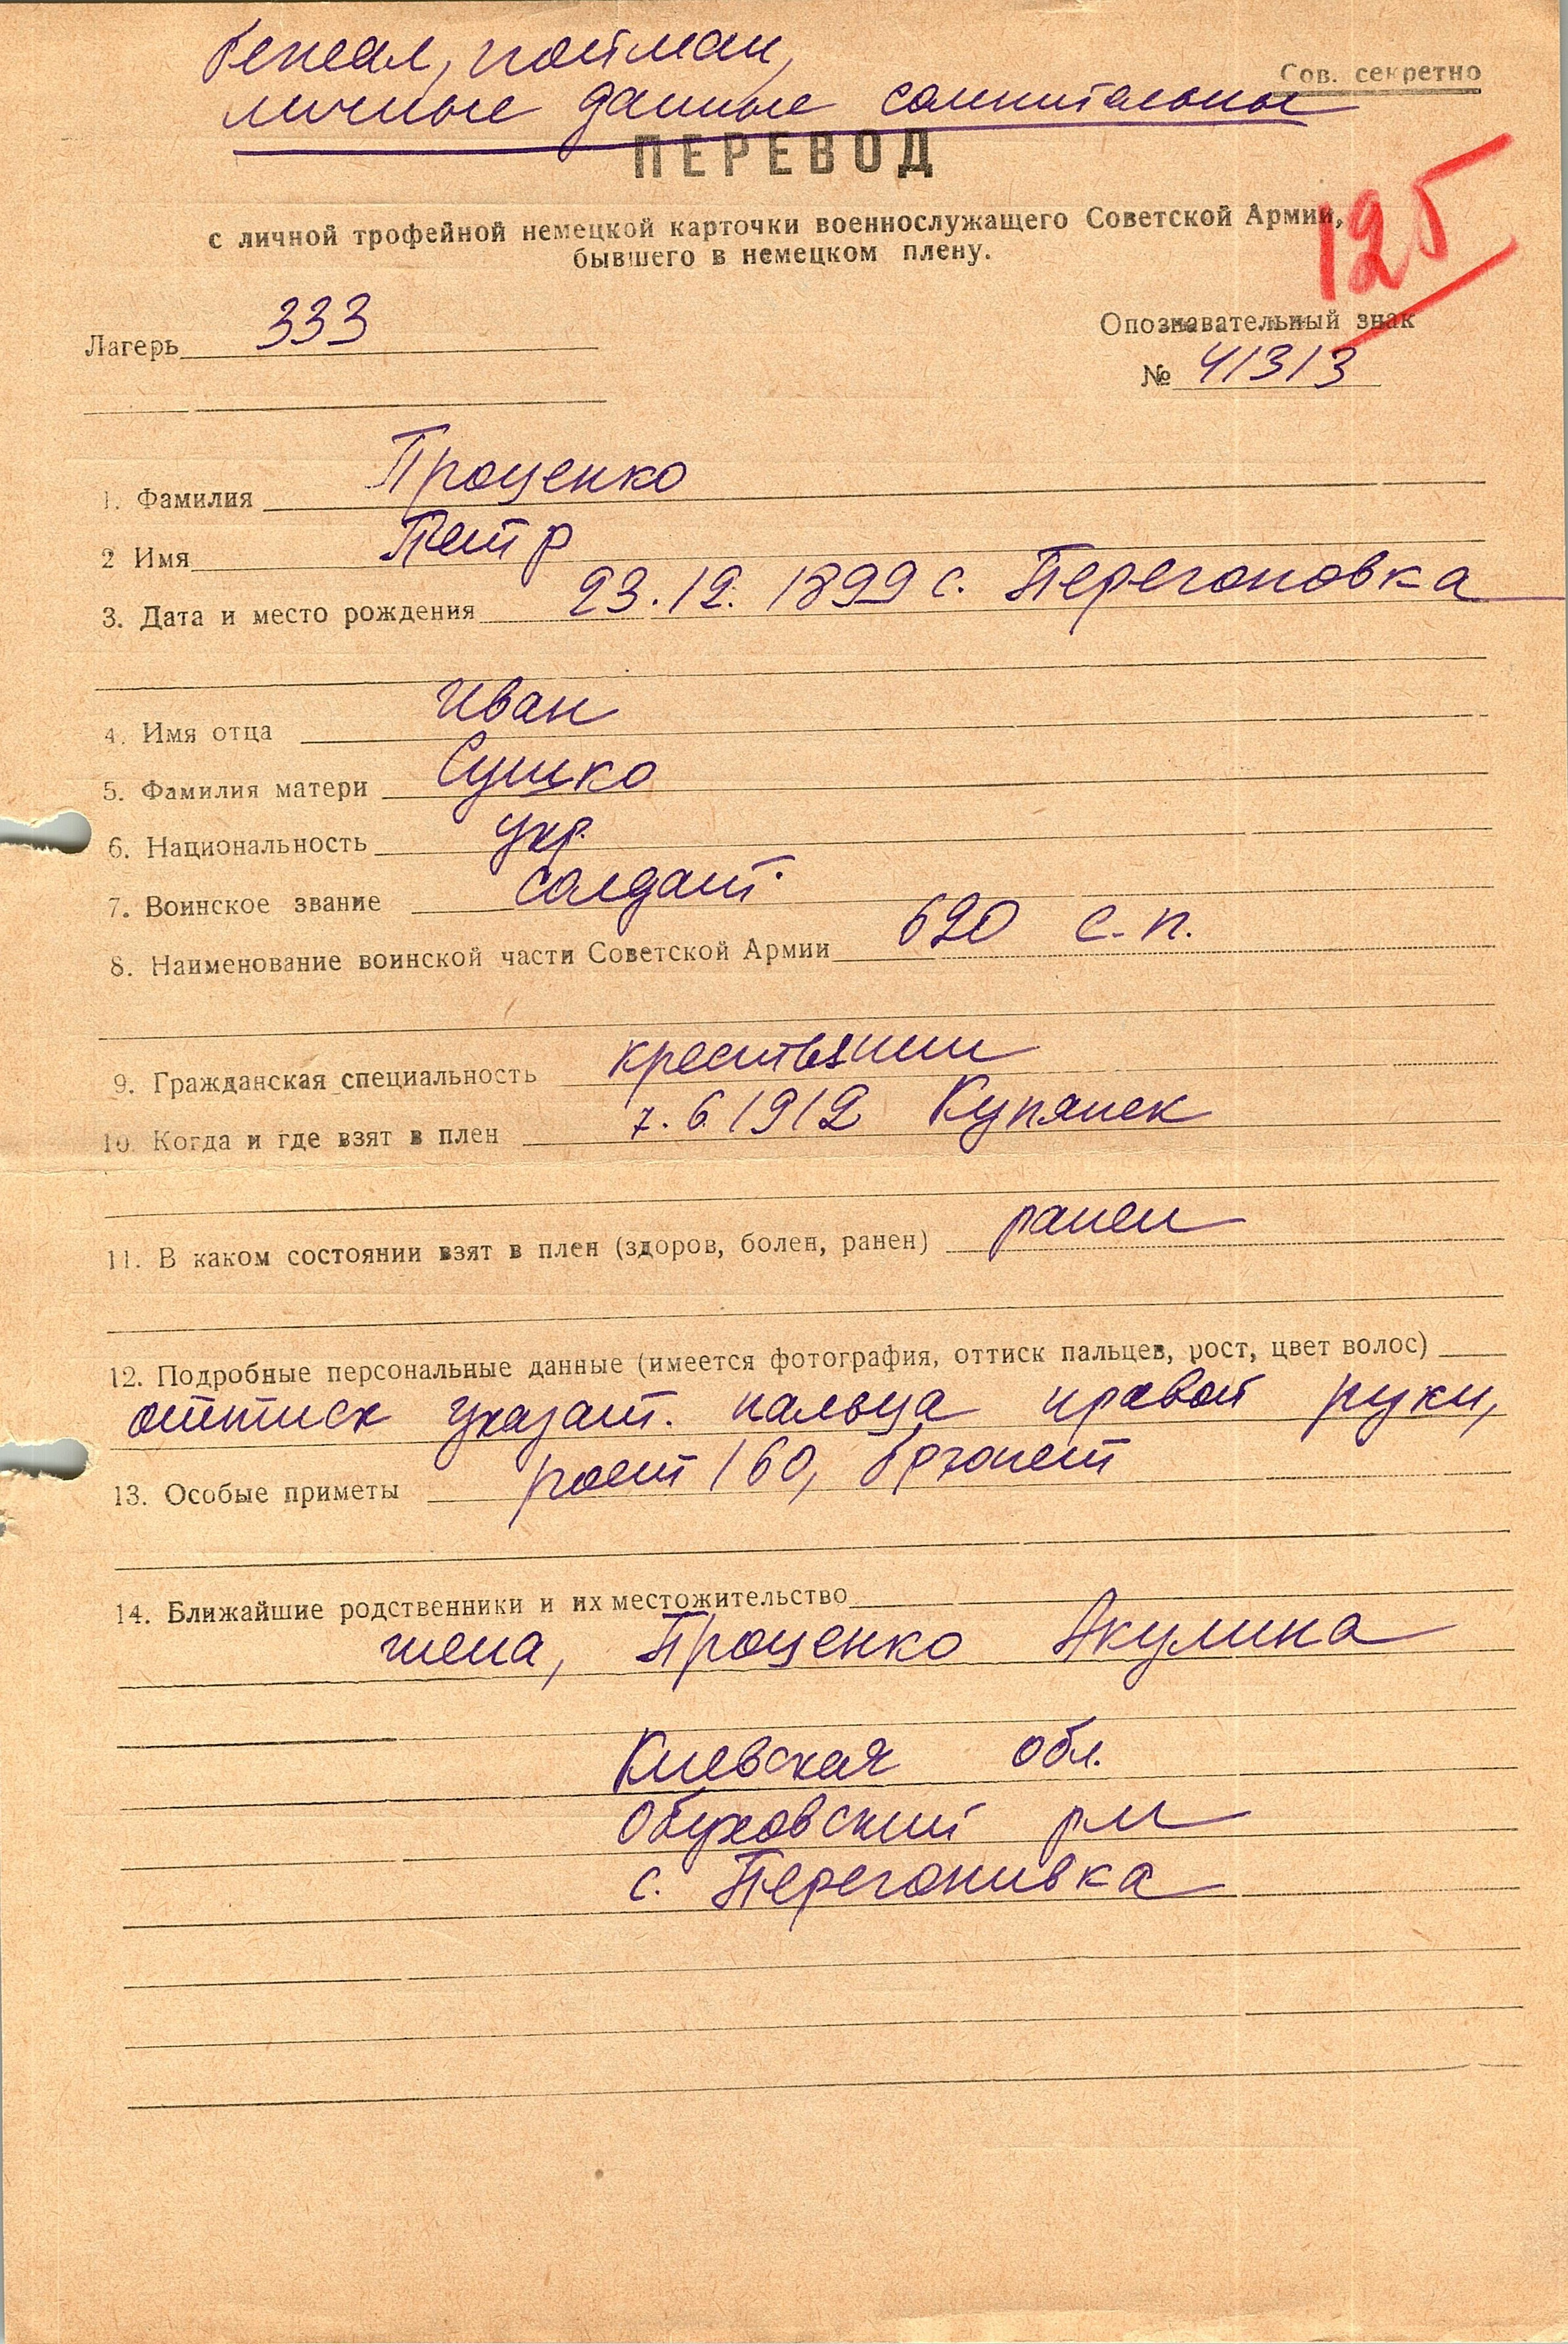 Бежал, пойман,
Сов. секретно
личные данные сомнительны
ПЕРЕВОД
125
с личной трофейной немецкой карточки военнослужащего Советской Армии,
бывшего в немецком плену.
Лагерь 333
Опознавательный знак
№ 41313
1. Фамилия Проценко
2 Имя Петр
3. Дата и место рождения 23.12.1899 с. Перегоновка
4. Имя отца Иван
5. Фамилия матери Сушко
6. Национальность укр.
7. Воинское звание солдат.
8. Наименование воинской части Советской Армии 620 с.п.
9. Гражданская специальность крестьянин
10. Когда и где взят в плен 7.6.1912 Купянск
11. В каком состоянии взят в плен (здоров, болен, ранен) ранен
12. Подробные персональные данные (имеется фотография, оттиск пальцев, рост, цвет волос)
оттиск указат. пальца правой руки,
13. Особые приметы рост 160, брюнет
14. Ближайшие родственники и их местожительство
жена, Проценко Акулина
Киевская обл.
Обуховский рн
с. Перегонивка